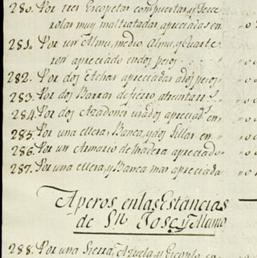 280. Por tres Escopetas compuertas, y Esco
rolas muy maltratadas apreciadas en
281. Por un Almu, medio Almu, y Quarte
ron apreciado en dos pesos
282. Por dos Achas apreciadas a dos pesos
283. Por dos Barras de fierro
284. Por dos Azadones usados apreciados en
285. Por una mesa, Banca, y dos Sillas en
286. Por un Armario de madera apreciado
287. Por una mesa, y Banca mas apreciada
Aperos en las Estancias
de Sn. Jose, y Alamo
288. Por una Sierra, Azuela, y Escoplo en